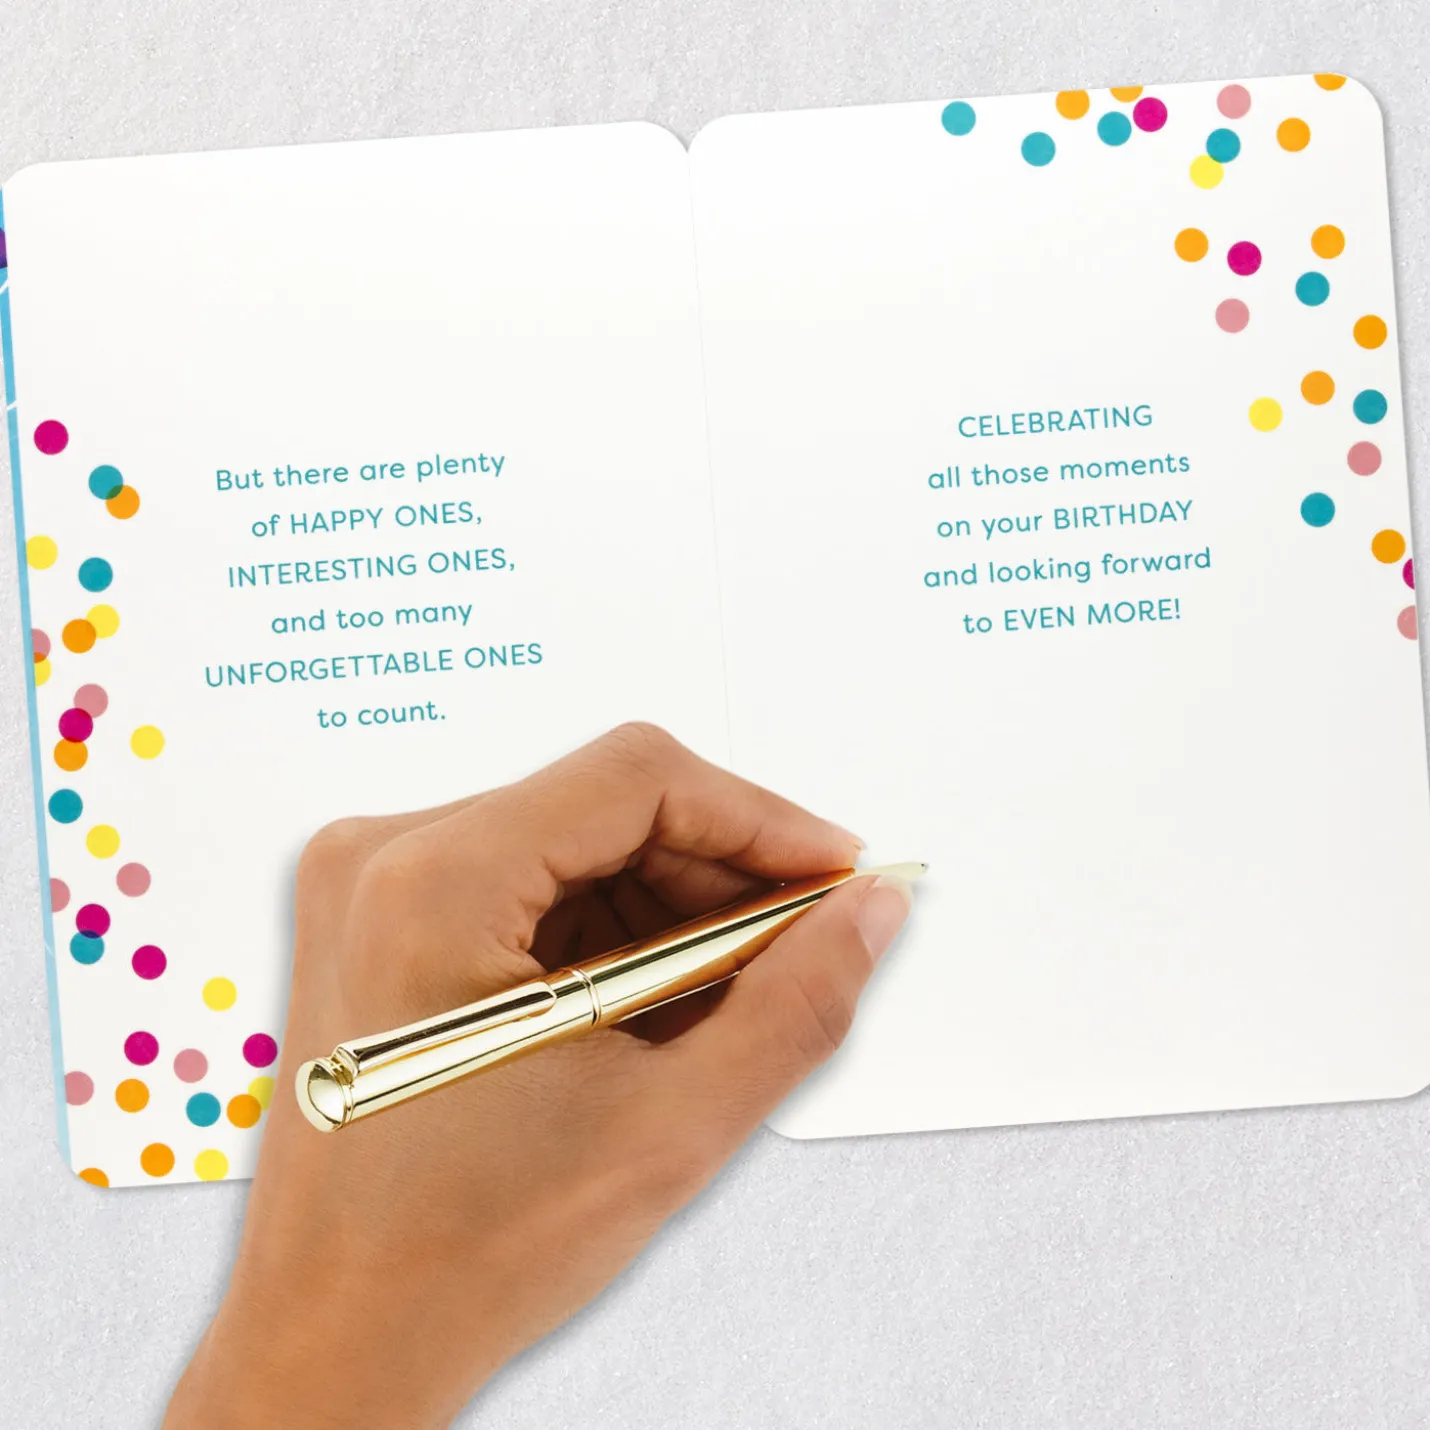 But there are plenty
of HAPPY ONES,
INTERESTING ONES,
and too many
UNFORGETTABLE ONES
to count.
CELEBRATING
all those moments
on your BIRTHDAY
and looking forward
to EVEN MORE!